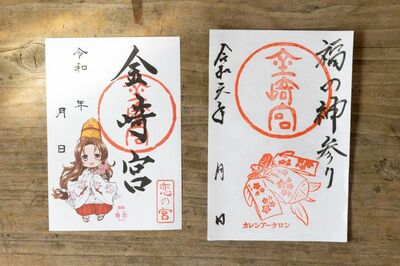 金崎宮
金崎宮
令和 年
月 日
恋の宮
福の神参り
金崎宮
令和元年
月 日
カレンアーケロン